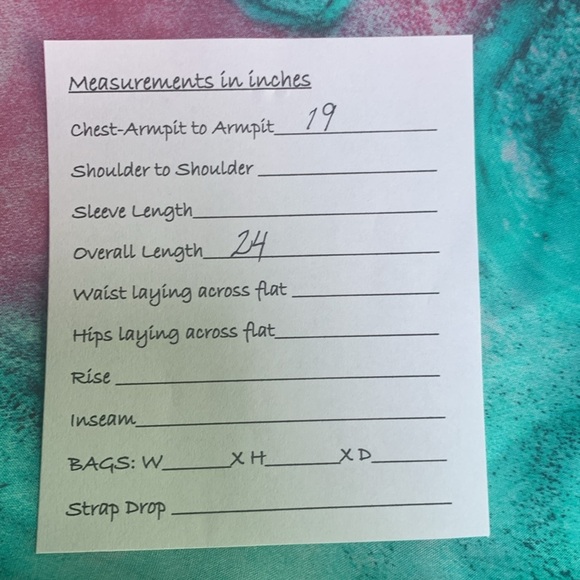 Measurements in inches
Chest-Armpit to Armpit 19
Shoulder to Shoulder
Sleeve Length
Overall Length 24
Waist laying across flat
Hips laying across flat
Rise
Inseam
BAGS: W______X H______X D______
Strap Drop